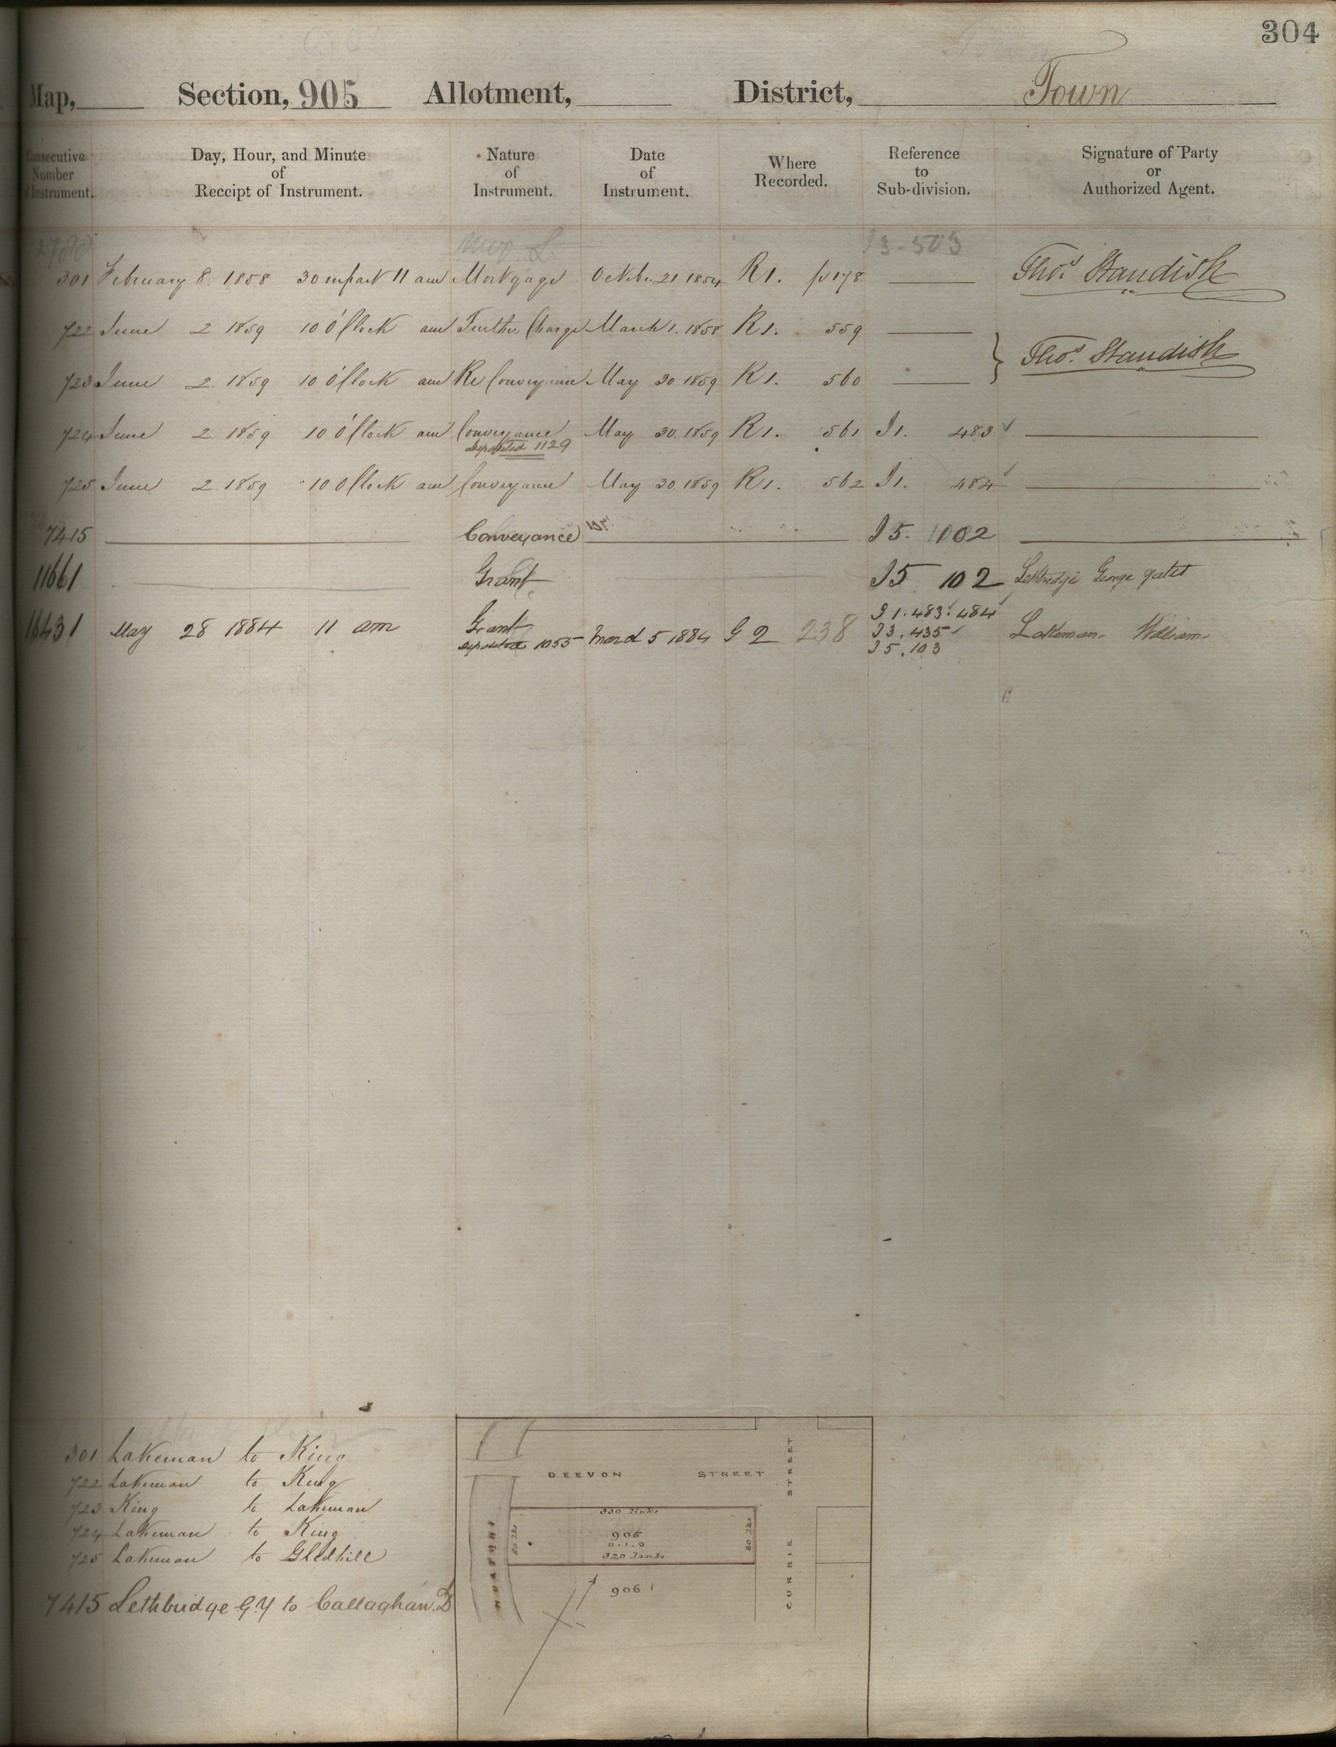 304
Map, Section, 905 Allotment, District, Town
Consecutive Number of Instrument. Day, Hour, and Minute of Receipt of Instrument. Nature of Instrument. Date of Instrument. Where Recorded. Reference to Sub-division. Signature of Party or Authorized Agent.
I3-503
301 February 8. 1858 30 m past 11 am Mortgage October 21 1854 R1. p 178 Thos. Standish
722 June 2 1859 10 O'Clock am Further Charge March 1. 1858 R1. 559
Thos. Standish
723 June 2 1859 10 O'Clock am Re Conveyance May 30 1859 R1. 560
724 June 2 1859 10 O'Clock am Conveyance May 30. 1859 R1. 561 I1. 483
deposited 1129
725 June 2 1859 10 O'Clock am Conveyance May 30 1859 R1. 562 I1. 484
7415 Conveyance I5. 102
11661 Grant I5 102 Lethbridge George Yates
16431 May 28 1884 11 am Grant March 5 1884 G2 238 I1. 483. 484 Lakeman William
deposited 1055 I3. 435
I5. 103
301 Lakeman to King
722 Lakeman to King
723 King to Lakeman
724 Lakeman to King
725 Lakeman to Gledhill
7415 Lethbridge G.Y to Callaghan. D
DEEVON STREET
CURRIE STREET
330 links
80 lks
905
0.1.0
320 links
80 lks
906